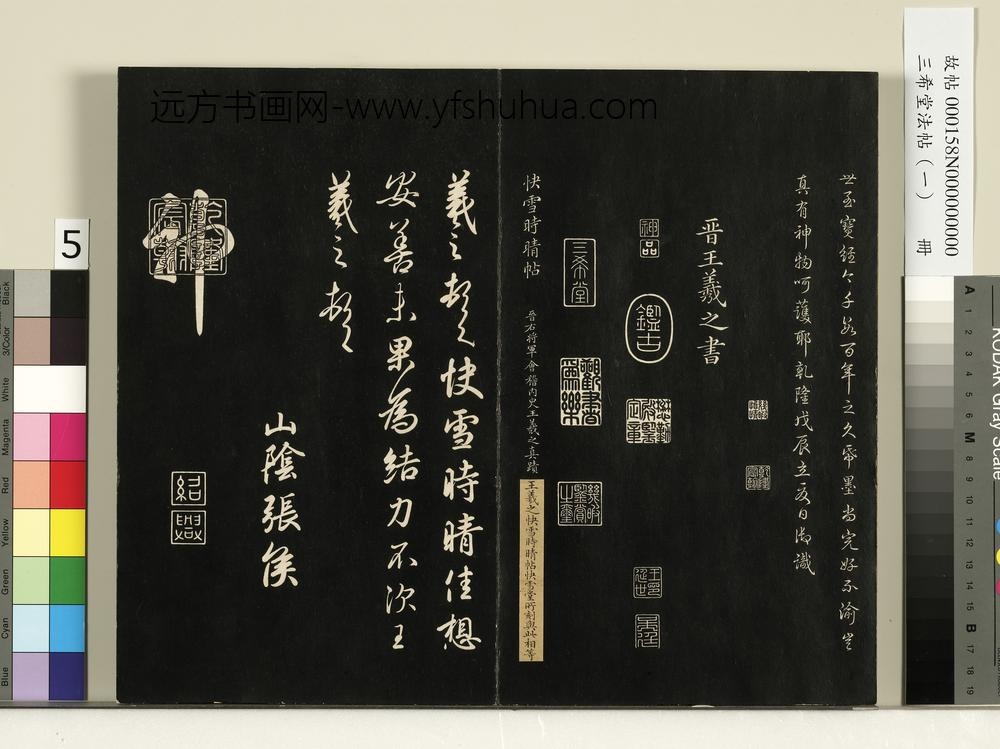 远方书画网-www.yfshuhua.com
故帖 000158N000000000
三希堂法帖(一) 冊
世至寶經今千數百年之久帋墨尚完好不渝豈
真有神物呵護耶乾隆戊辰立夏日御識
晋王羲之書
神品
鑑古
三希堂
快雪時晴帖
晉右將軍會稽內史王羲之真蹟
王羲之快雪時晴帖快雪堂所刻與此相等
羲之頓首快雪時晴佳想
安善未果為結力不次王
羲之頓首
山陰張侯
神
紹興
5
KODAK Gray Scale
A 1 2 3 4 5 6 M 8 9 10 11 12 13 14 15 B 17 18 19
Black
3/Color
White
Magenta
Red
Yellow
Green
Cyan
Blue